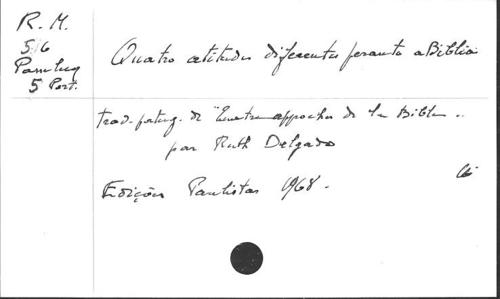 R. M.
5/6
5 Port.
Quatro atitudes diferentes perante a Biblia
trad. portug. de "Quatre approches de la Bible" ..
por Ruth Delgado
Edições Paulistas 1968.